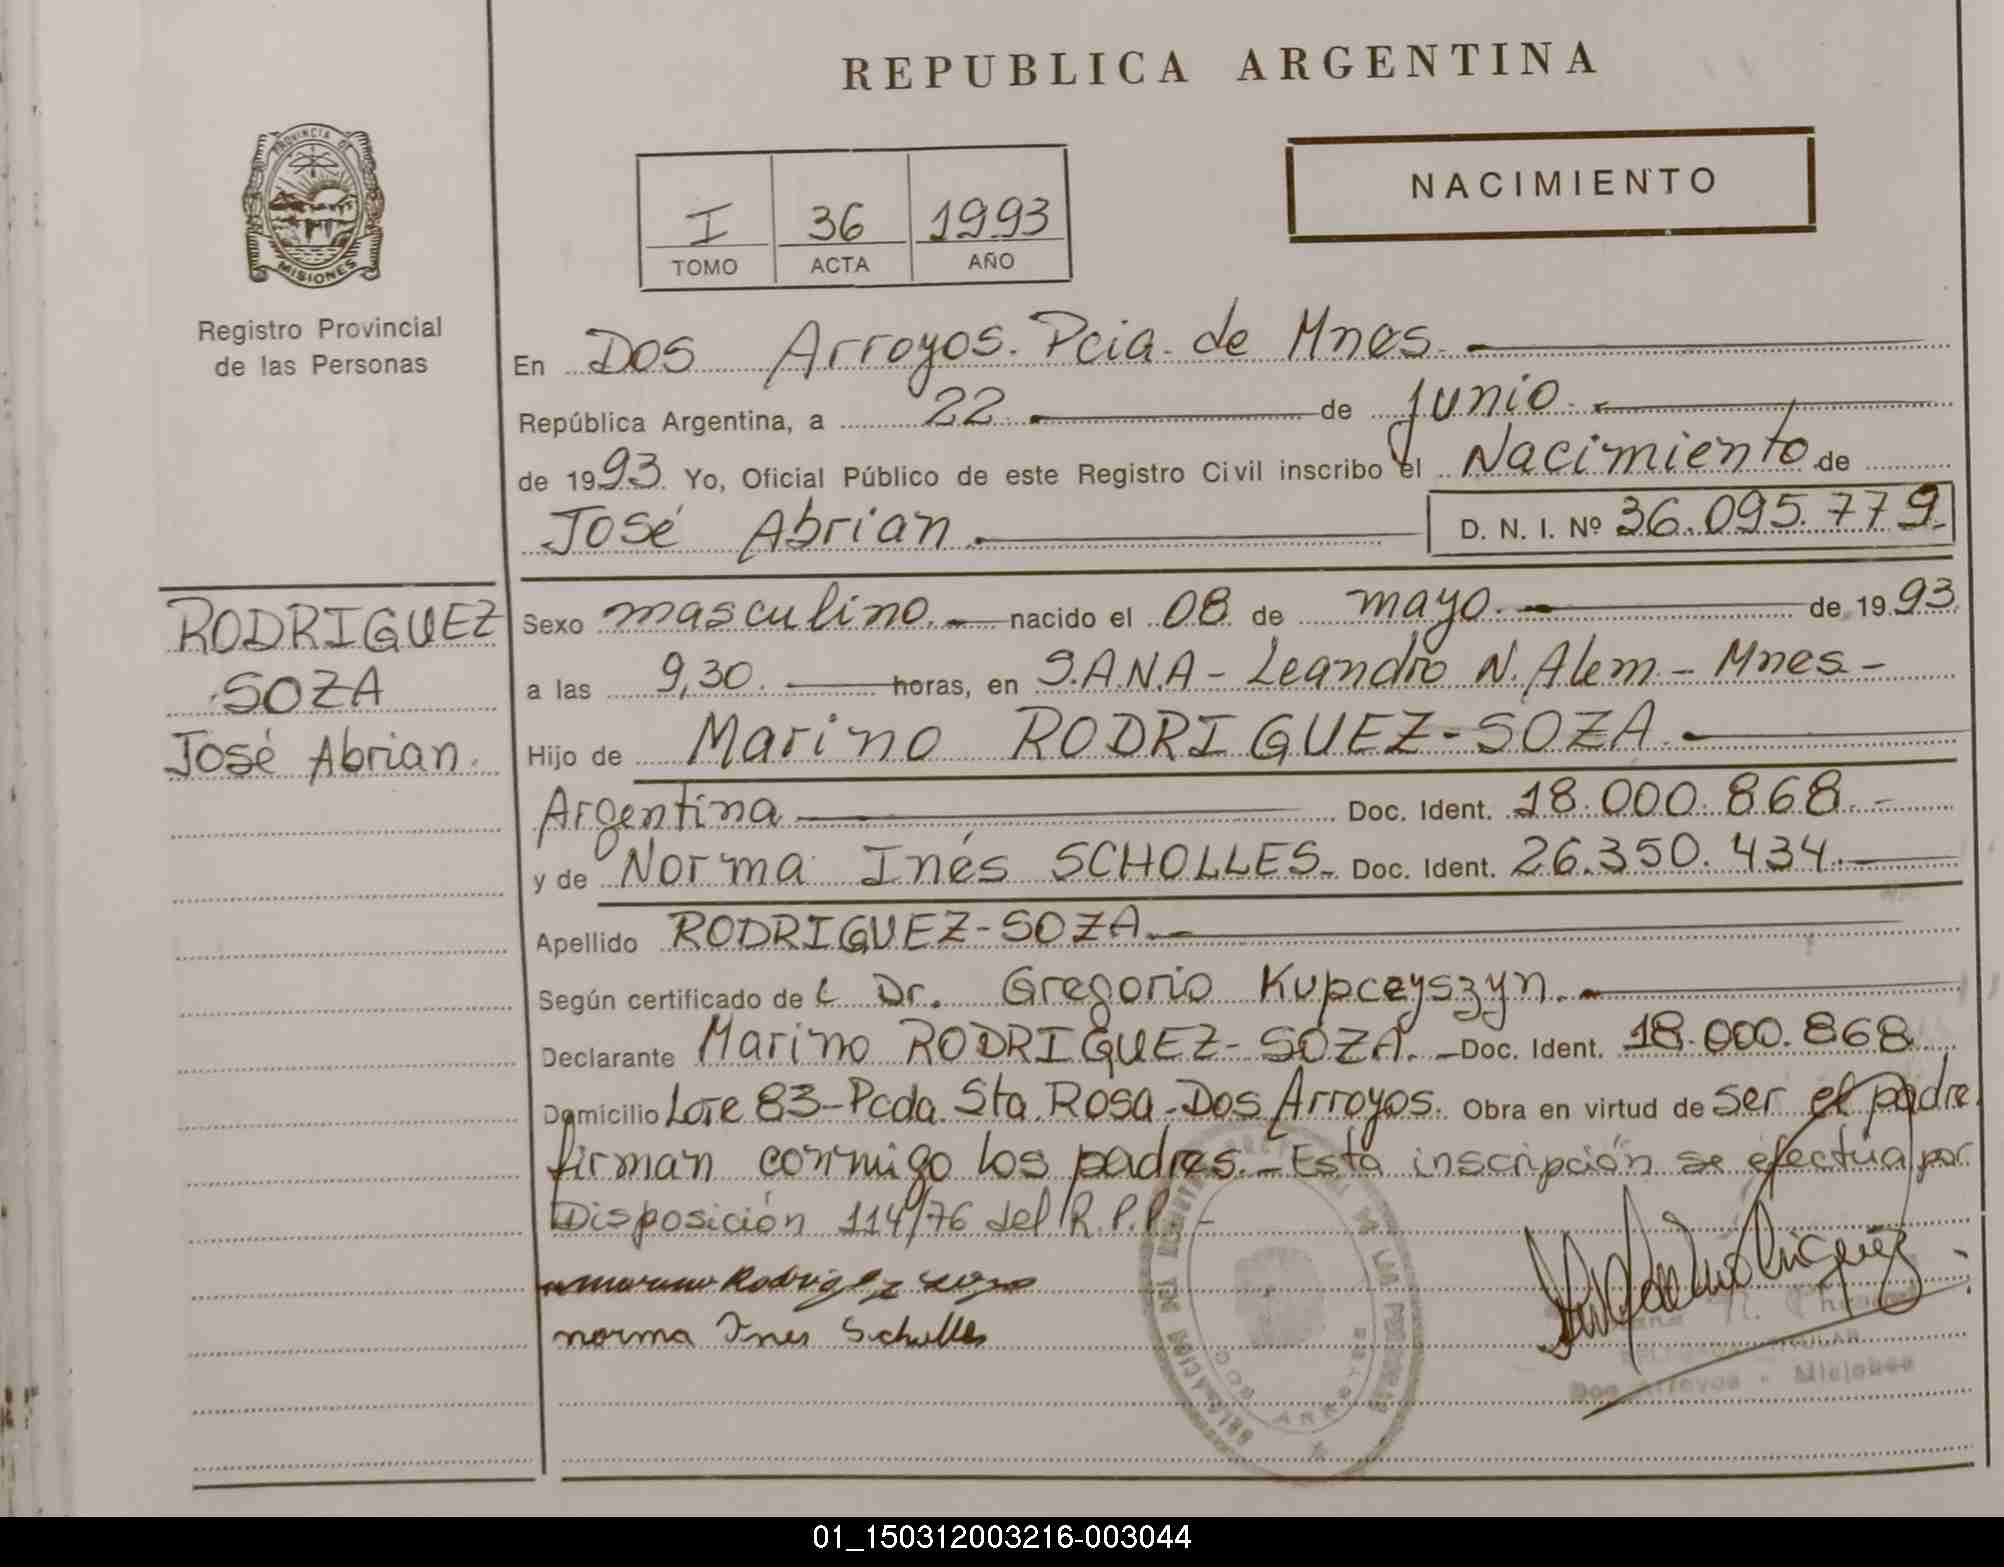 REPUBLICA ARGENTINA
PROVINCIA DE
MISIONES
Registro Provincial
de las Personas
I 36 1993
TOMO ACTA AÑO
NACIMIENTO
En Dos Arroyos. Pcia. de Mnes.
República Argentina, a 22 de junio
de 1993. Yo, Oficial Público de este Registro Civil inscribo el Nacimiento de
José Abrian D. N. I. Nº 36.095.779.
RODRIGUEZ
SOZA
José Abrian.
Sexo masculino. nacido el 08 de mayo. de 1993
a las 9,30. horas, en S.A.N.A - Leandro N. Alem - Mnes -
Hijo de Marino RODRIGUEZ-SOZA.
Argentina Doc. Ident. 18.000.868.-
y de Norma Inés SCHOLLES. Doc. Ident. 26.350.434.
Apellido RODRIGUEZ-SOZA.
Según certificado de L Dr. Gregorio Kupceyszyn.
Declarante Marino RODRIGUEZ-SOZA. Doc. Ident. 18.000.868
Domicilio Lote 83-Pcda. Sta. Rosa-Dos Arroyos. Obra en virtud de ser el padre.
firman conmigo los padres.- Esta inscripción se efectúa por
Disposición 114/76 del R.P.P. -
Rodriguez
norma Ines Scholles
DOS ARROYOS
Dos Arroyos - Misiones
01_150312003216-003044